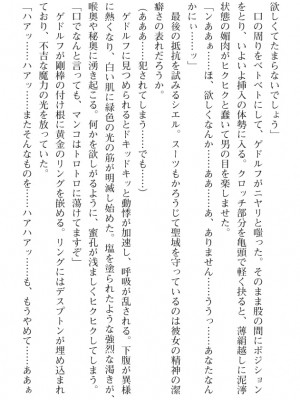 欲しくてたまらないでしょう」
　口の周りをベトベトにして、ゲドルフがニヤリと嗤った。そのまま股の間にポジション
をとり、いよいよ挿入の体勢に入る。クロッチ部分を亀頭で軽く抉ると、薄絹越しに泥濘
状態の媚肉がヒクヒクと蠢いて男の目を楽しませた。
「ンああぁ……ほ、欲しくなんか……ああ……あ、ありません……ううっ……あなたなん
かに……ぃっ」
　最後の抵抗を試みるシエル。スーツもかろうじて聖域を守っているのは彼女の精神の潔
癖さの表れだろうか。
（あああ……犯されてしまう……でも……）
　ゲドルフに見つめられるとドキッドキッと動悸が加速し、呼吸が乱される。下腹が異様
に熱くなり、白い肌に緑色の光の筋が明滅した。塩を塗られたような強烈な渇きが、
喉奥や秘奥に湧き起こる。何かを欲しがるように、蜜孔が浅ましくヒクヒクしてしまう。
「口でなんと言っても、マンコはトロトロに蕩けてますぞ」
　ゲドルフが剛棒の付け根に黄金のリングを嵌める。リングにはデスプトンが埋め込まれ
ており、不吉な魔力の光を放っていた。
「ハアッ……ハアッ……またそんなものを……ハアハアッ……も、もうやめて……ああぁ